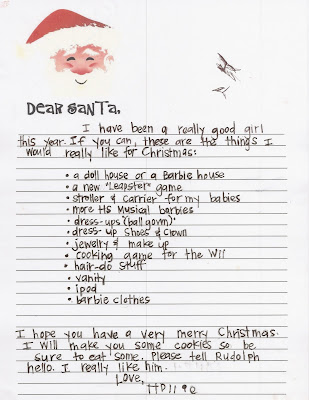 DEAR SANTA,
I have been a really good girl
this year. If you can, these are the things I
would really like for Christmas:
• a doll house or a Barbie house
• a new "Leapster" game
• stroller & carrier for my babies
• more HS Musical barbies
• dress-ups (ball gown)
• dress-up shoes & crown
• jewelry & make up
• cooking game for the Wii
• hair-do stuff
• vanity
• ipod
• barbie clothes
I hope you have a very merry Christmas.
I will make you some cookies so be
sure to eat some. Please tell Rudolph
hello. I really like him.
Love,